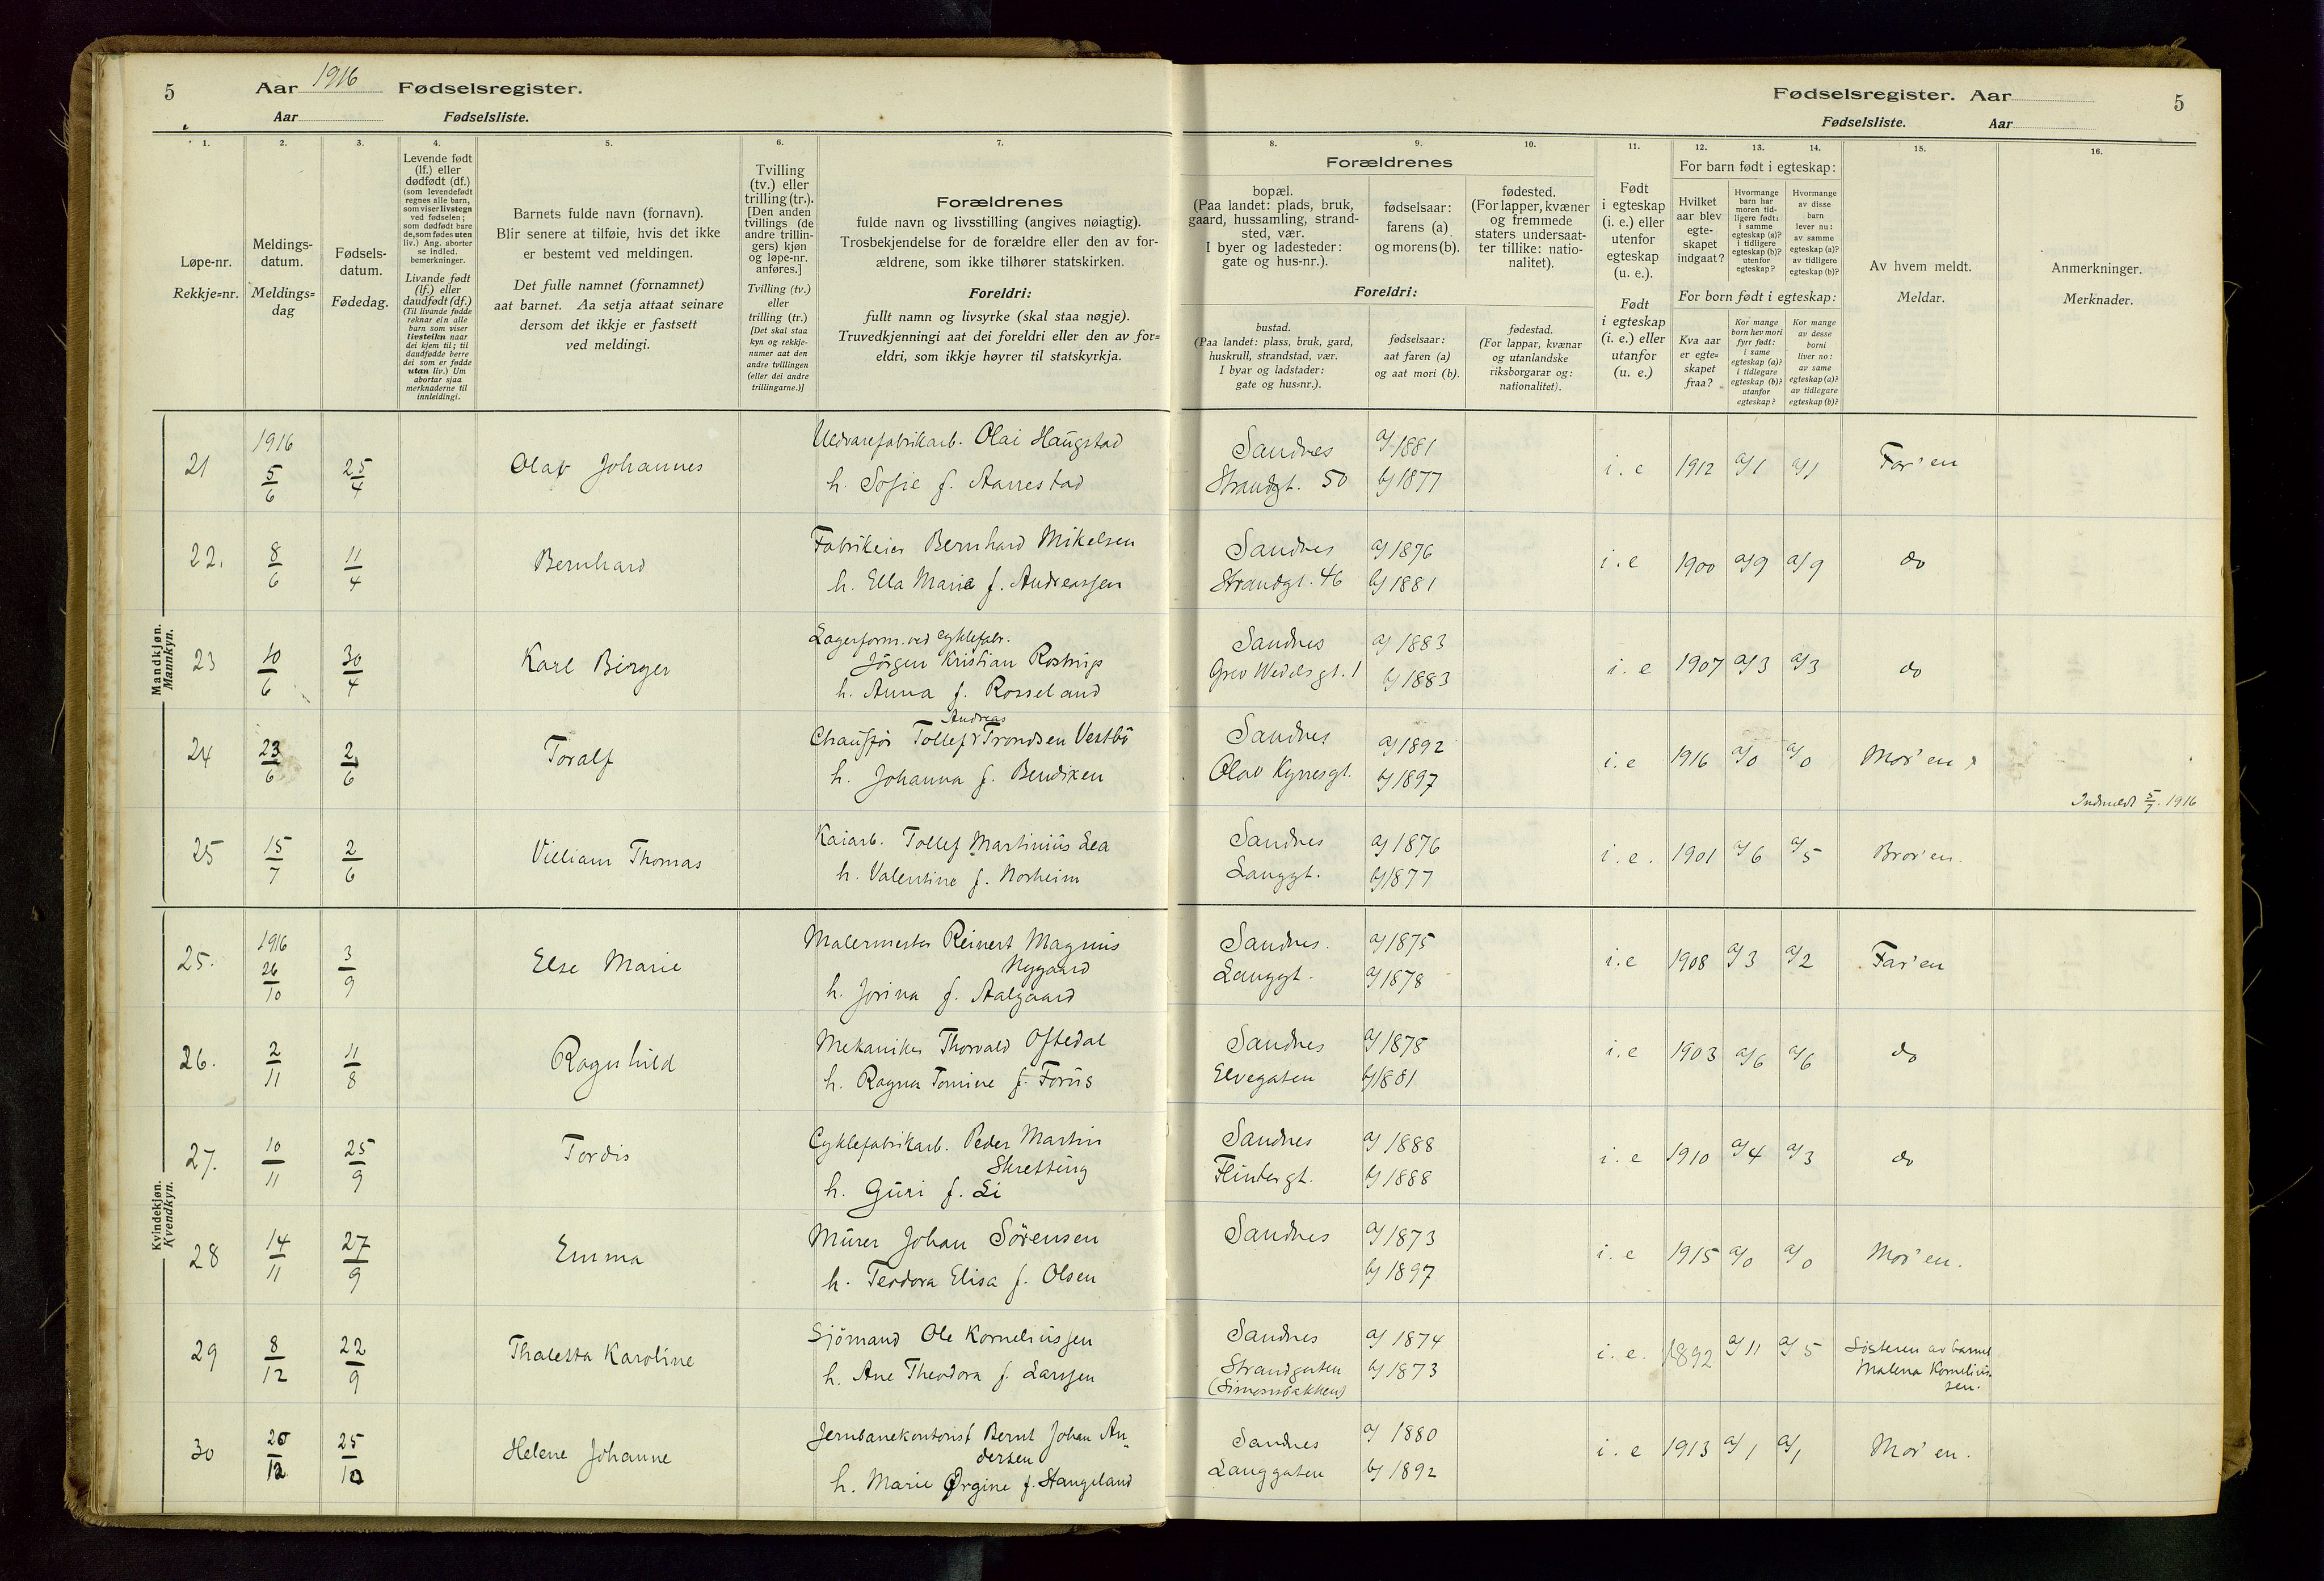 5 Aar 1916 Fødselsregister.
Aar Fødselsliste.
Fødselsregister. Aar 5
Fødselsliste. Aar
1. 2. 3. 4. 5. 6. 7. 8. 9. 10. 11. 12. 13. 14. 15. 16.
Løpe-nr.
Rekkje=nr.
Meldings-
datum.
Meldings=
dag
Fødsels-
datum.
Fødedag.
Levende født
(lf.) eller
dødfødt (df.)
(som levendefødt
regnes alle barn,
som viser livstegn
ved fødselen;
som dødfødt bare
de, som fødes uten
liv.) Ang. aborter
se indled.
bemerkninger.
Livande født
(lf.) eller
daudfødt (df.)
(Til livande fødde
reknar ein alle
barn som viser
livsteikn naar
dei kjem til; til
daudfødde berre
dei som er fødde
utan liv.) Um
abortar sjaa
merknaderne til
innleidingi.
Barnets fulde navn (fornavn).
Blir senere at tilføie, hvis det ikke
er bestemt ved meldingen.
Det fulle namnet (fornamnet)
aat barnet. Aa setja attaat seinare
dersom det ikkje er fastsett
ved meldingi.
Tvilling
(tv.) eller
trilling (tr.).
[Den anden
tvillings (de
andre trillin-
gers) kjøn
og løpe-nr.
anføres.]
Tvilling (tv.)
eller
trilling (tr.)
[Det skal staa
kyn og rekkje-
numer aat den
andre tvillingen
(eller dei andre
trillingarne.)]
Forældrenes
fulde navn og livsstilling (angives nøiagtig).
Trosbekjendelse for de forældre eller den av for-
ældrene, som ikke tilhører statskirken.
Foreldri:
fullt namn og livsyrke (skal staa nøgje).
Truvedkjenningi aat dei foreldri eller den av for=
eldri, som ikkje høyrer til statskyrkja.
Forældrenes
bopæl.
(Paa landet: plads, bruk,
gaard, hussamling, strand-
sted, vær.
I byer og ladesteder:
gate og hus-nr.).
fødselsaar:
farens (a)
og morens (b).
fødested.
(For lapper, kvæner
og fremmede
staters undersaat-
ter tillike: natio-
nalitet).
Foreldri:
bustad.
(Paa landet: plass, bruk, gard,
huskrull, strandstad, vær.
I byar og ladstader:
gate og hus=nr.).
fødselsaar:
aat faren (a)
og aat mori (b).
fødestad.
(For lappar, kvænar
og utanlandske
riksborgarar og:
nationalitet).
Født
i egteskap
(i. e.) eller
utenfor
egteskap
(u. e.).
Født
i egteskap
(i. e.) eller
utanfor
(u. e.)
For barn født i egteskap:
Hvilket
aar blev
egte-
skapet
indgaat?
Hvormange
barn har
moren tid-
ligere født:
i samme
egteskap (a)?
i tidligere
egteskap (b)?
utenfor
egteskap?
Hvormange
av disse
barn
lever nu:
av samme
egteskap (a)?
av tidligere
egteskap (b)?
For born født i egteskap:
Kva aar
er egte=
skapet
fraa?
Kor mange
born hev mori
fyrr født:
i same
egteskap (a)?
i tidlegare
egteskap (b)?
utanfor
egteskap?
Kor mange
av desse
borni
liver no:
av same
egteskap (a)?
av tidlegare
egteskap (b)?
Av hvem meldt.
Meldar.
Anmerkninger.
Merknader.
Mandkjøn.
Mannkyn.
1916
21 5/6 25/4 Olaf Johannes
Uldvarefabrikarb. Olai Haugstad
h. Sofie f. Aarrestad
Sandnes
Strandgt. 50
a/1881
b/1877
i. e 1912 a/1 a/1 Far'en
22. 8/6 11/4 Bernhard
Fabrikeier Bernhard Mikelsen
h. Ella Marie f. Andreassen
Sandnes
Strandgt. 46
a/1876
b/1881
i. e 1900 a/9 a/9 do
23 10/6 30/4 Karl Birger
Lagerform. ved cyklefabr.
Jørgen Kristian Rostrup
h. Anna f. Rosseland
Sandnes
Grev Wedelsgt. 1
a/1883
b/1883
i. e 1907 a/3 a/3 do
24 23/6 2/6 Toralf
Andreas
Chauffør Tollef Trondsen Vestbö
h. Johanna f. Bendixen
Sandnes
Olav Kyrresgt.
a/1892
b/1897
i. e 1916 a/0 a/0 Mor'en
Indmeldt 5/7. 1916
25 15/7 2/6 Villiam Thomas
Kaiarb. Tollef Martinius Lea
h. Valentine f. Norheim
Sandnes
Langgt.
a/1876
b/1877
i. e. 1901 a/6 a/5 Bror'en.
Kvindekjøn.
Kvendkyn.
1916
25. 26/10 3/9 Else Marie
Malermester Reinert Magnus
Nygaard
h. Jorina f. Aalgaard
Sandnes.
Langgt.
a/1875
a/1878
i. e 1908 a/3 a/2 Far'en
26. 2/11 11/8 Ragnhild
Mekaniker Thorvald Oftedal
h. Ragna Tomine f. Forus
Sandnes
Elvegaten
a/1878
b/1881
i. e 1903 a/6 a/6 do
27. 10/11 25/9 Tordis
Cyklefabrikarb. Peder Martin
Skretting
h. Guri f. Li
Sandnes
Flintegt.
a/1888
b/1888
i. e 1910 a/4 a/3 do
28 14/11 27/9 Emma
Murer Johan Sörensen
h. Teodora Elisa f. Olsen
Sandnes
a/1873
b/1897
i. e 1915 a/0 a/0 Mor'en.
29 8/12 22/9 Thaletta Karoline
Sjömand Ole Korneliussen
h. Ane Theodora f. Larssen
Sandnes
Strandgaten
(Simonsbakken)
a/1874
b/1873
i. e. 1892 a/11 a/5 Søsteren av barnet
Malena Kornelius-
sen.
30 20/12 25/10 Helene Johanne
Jernbanekontorist Bernt Johan An-
dersen
h. Marie Ørgine f. Stangeland
Sandnes
Langgaten
a/1880
b/1892
i. e 1913 a/1 a/1 Mor'en.